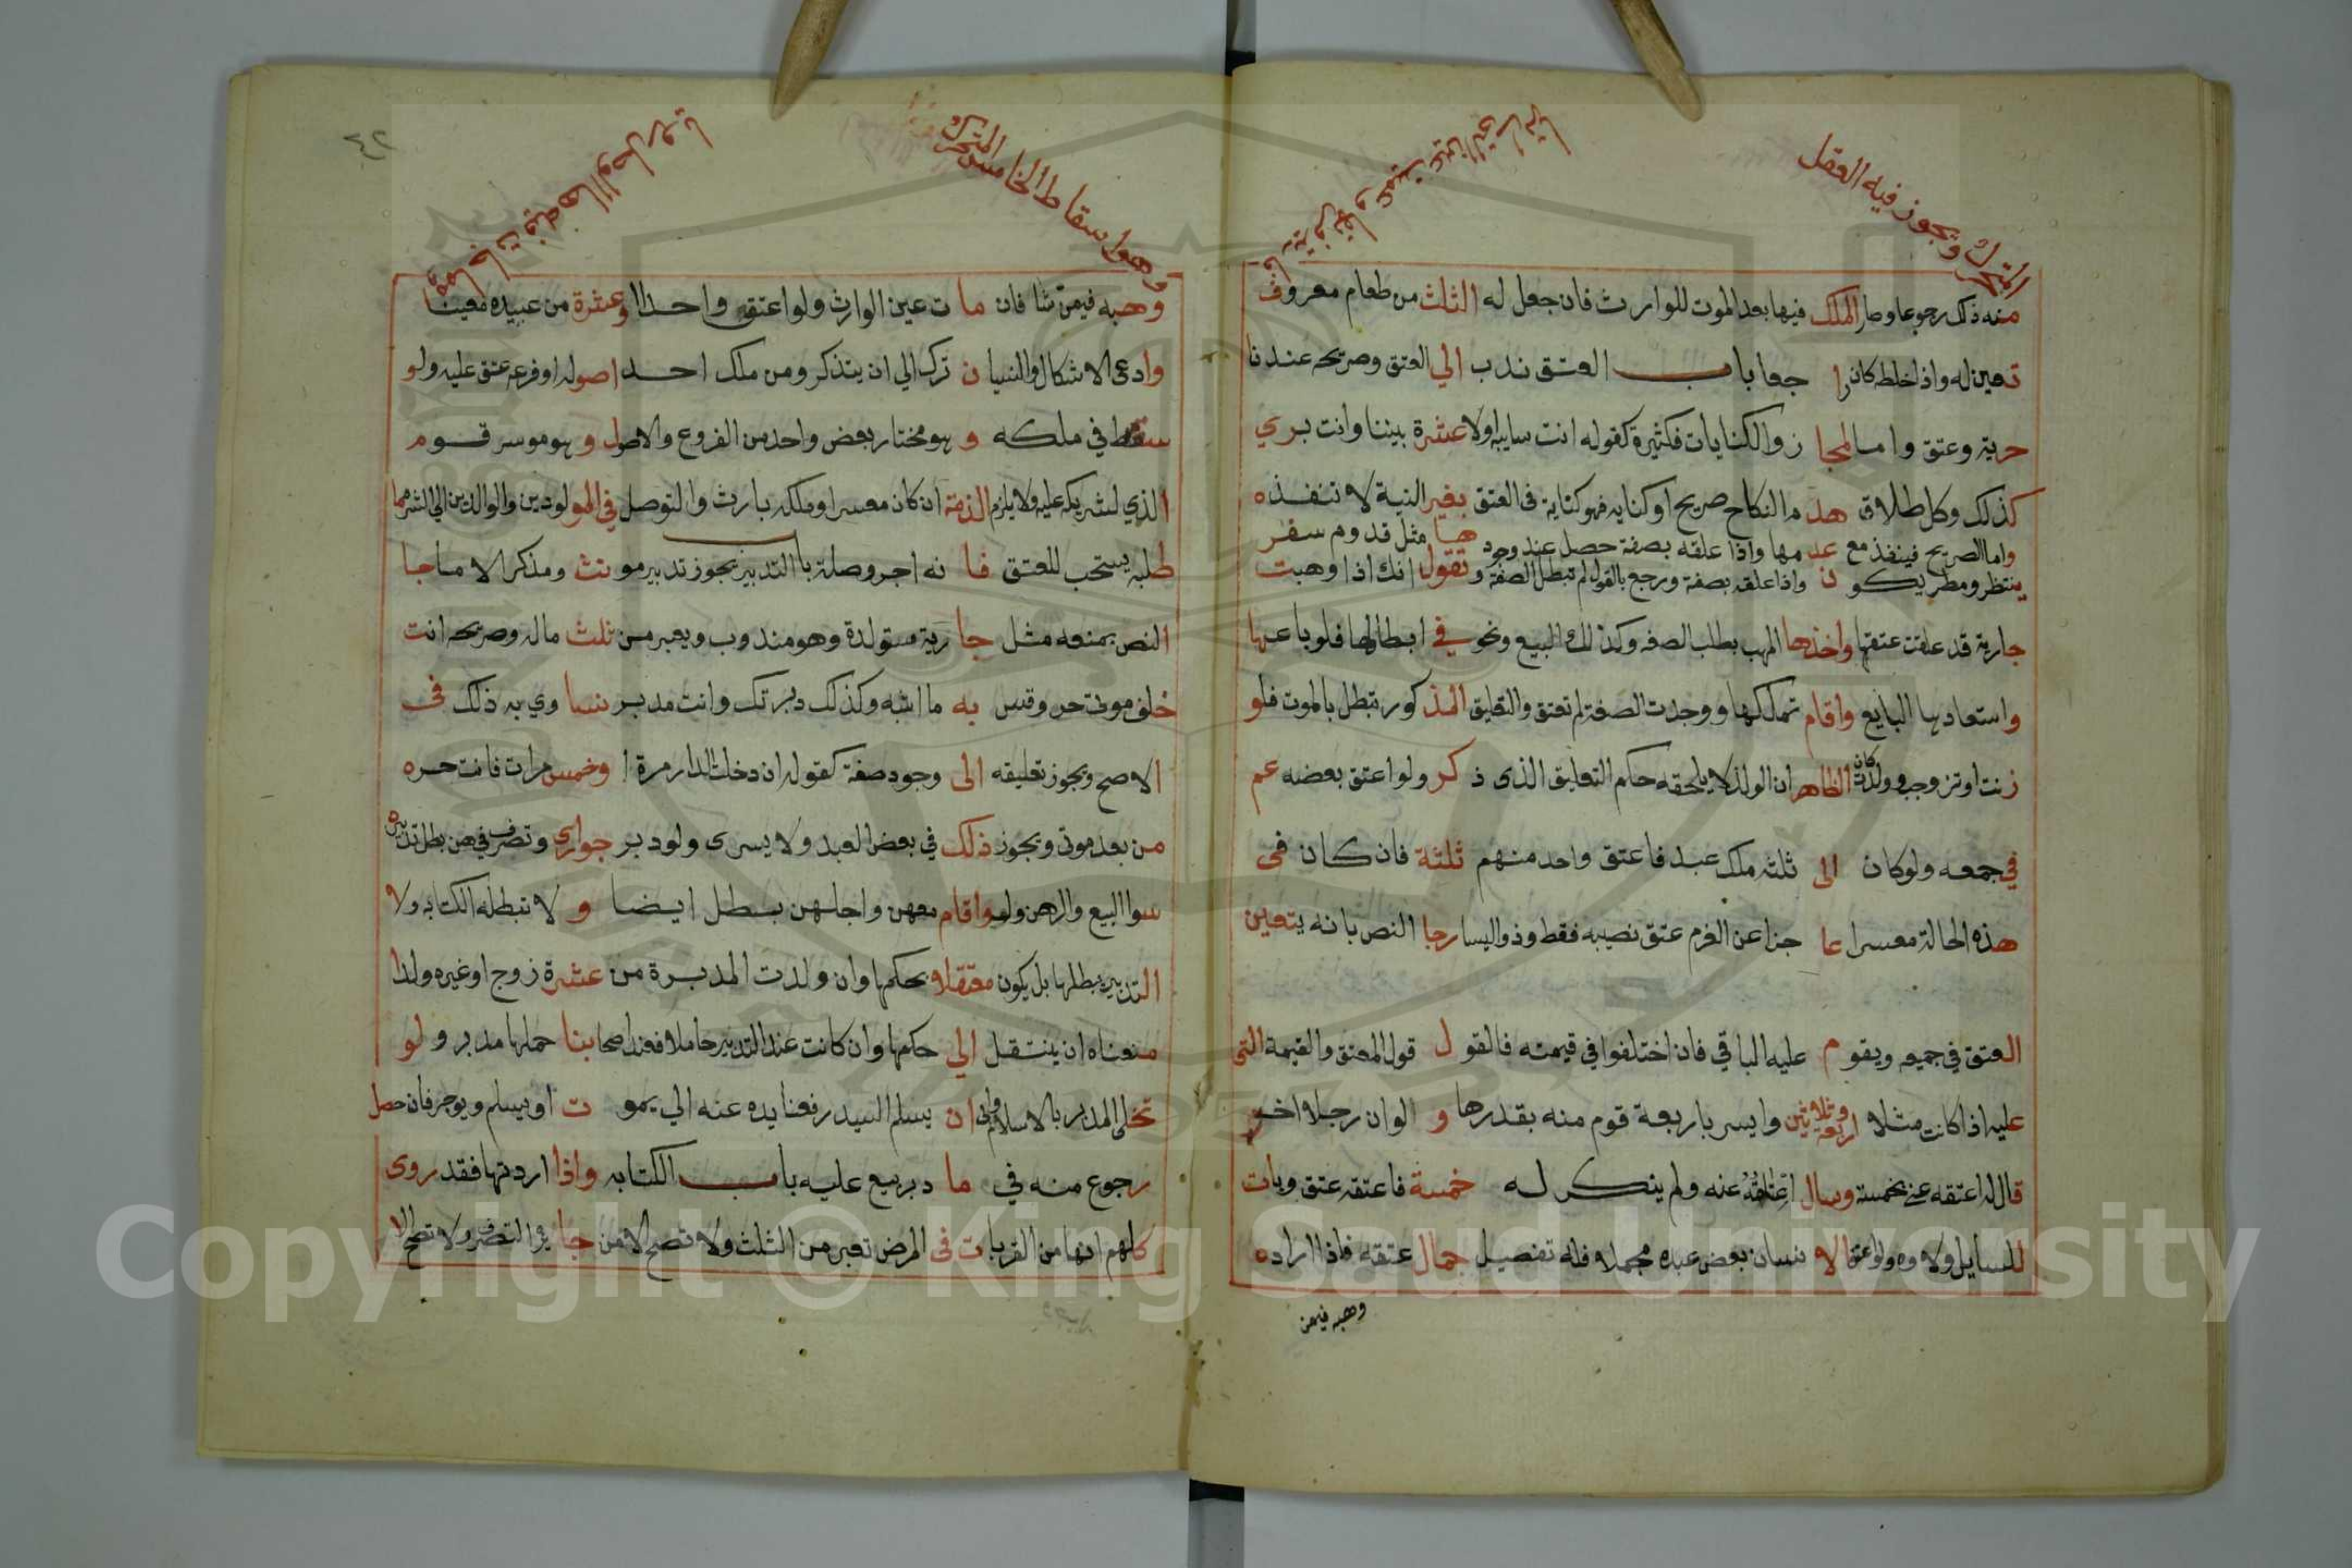 المتحرك وتجوز فيه العقل
منه ذلك رجوعا وصار الملك فيها بعد الموت للوارث فان جعل له الثلث من طعام معروف
تعين له واذا خلطه كان را جعا باب العتق ندب الي العتق وصريحه عندنا
حرية وعتق واما المجا ز والكنايات فكثيرة كقوله انت سايبه اولا عشرة بيننا وانت بري
كذلك وكل طلاق هد م النكاح صريح او كنايه فهو كناية فى العتق بغير النية لا تنفذه
واما الصريح فينفذ مع عد مها واذا علقه بصفة حصل عند وجود ها مثل قدوم سفر
ينتظر ومطر يكو ن واذا علقه بصفة ورجع بالقول لم تبطل الصفة وتقول انك اذا وهبت
جارية قد علقت عتقها واخذها المهب بطلب الصفه وكذلك البيع ونحو في ابطالها فلو باعها
واستعادها البايع واقام تملكها ووجدت الصفة لم تعتق والتعليق المذ كور تبطل بالموت فلو
زنت او تزوجت وولدت كان الظاهر ان الولد لا يلحقه حكم التعليق الذى ذ كر ولو اعتق بعضه عم
في جمعه ولو كان الى ثلثه ملك عبد فاعتق واحد منهم ثلثة فان كان فى
هذه الحالة معسرا عا جزا عن الغرم عتق نصيبه فقط وذو اليسار جا النص بانه يتعين
العتق في جميعه ويقو م عليه الباقي فان اختلفوا في قيمته فالقو ل قول المعتق والقيمة التى
عليه اذا كانت مثلا اربعة وثلاثين وايسر باربعة قوم منه بقدرها و الوان رجلا اخر
قال له اعتقه عني بخمسة وسال اعتاقه عنه ولم ينكر له خمسة فاعتقه عتق وبات
للسايل ولاوه ولو اعتق الا نسان بعض عبده مجملا فله تفصيل جمال عتقه فاذا اراده
وهبه فيمن
٤٢
وهو اسقاط الخامس المتحرك
وهبه فيمن شا فان ما ت عين الوارث ولو اعتق واحدا وعشرة من عبيده معينا
وادعى الاشكال والنسيا ن ترك الي ان يتذكر ومن ملك احد اصوله او فرعه عتق عليه ولو
سقط في ملكه و هو مختار بعض واحد من الفروع والاصول و هو موسر قوم
الذي لشريكه عليه ولا يلزم الذمة ان كان معسرا وملكه بارث والتوصل في المولودين والوالدين الي الشر مما
طلبه يستحب للعتق فا نه اجر وصلة باب التدبير يجوز تدبير مو نث ومذكر الا ما جا
النص بمنعه مثل جا رية مستولدة وهو مندوب ويعبر من ثلث ماله وصريحه انت
خلف موتى حر وقس به ما اشبه وكذلك دبرتك وانت مدبر نسا وي به ذلك فى
الاصح ويجوز تعليقه الى وجود صفة كقوله ان دخلت الدار مرة ا وخمس مرات فانت حره
من بعد موتى ويجوز ذلك في بعض العبد ولا يسرى ولو دبر جواري وتصرف فيهن بطل تدبيره
سوا البيع والرهن ولو واقام معهن واجلهن بطل ايضا و لا تبطله الكتابه ولا
التدبير يبطلها بل يكون معتقلا بحكمها وان ولدت المدبرة من عشرة زوج او غيره ولدا
منعناه ان ينتقل الي حكمها وان كانت عند التدبير حاملا فعند اصحا بنا حملها مدبر و لو
تحلى المدبر بالاسلام وابى ان يسلم السيد رفعنا يده عنه الي يمو ت او يسلم ويوجر فان حصل
رجوع منه في ما دبر بيع عليه باب الكتابه واذا اردتها فقد روى
كلهم انها من القربا ت فى المرض تعبر من الثلث ولا تصح الا من جا يز التصرف ولا تصح الا
Copyright © King Saud University